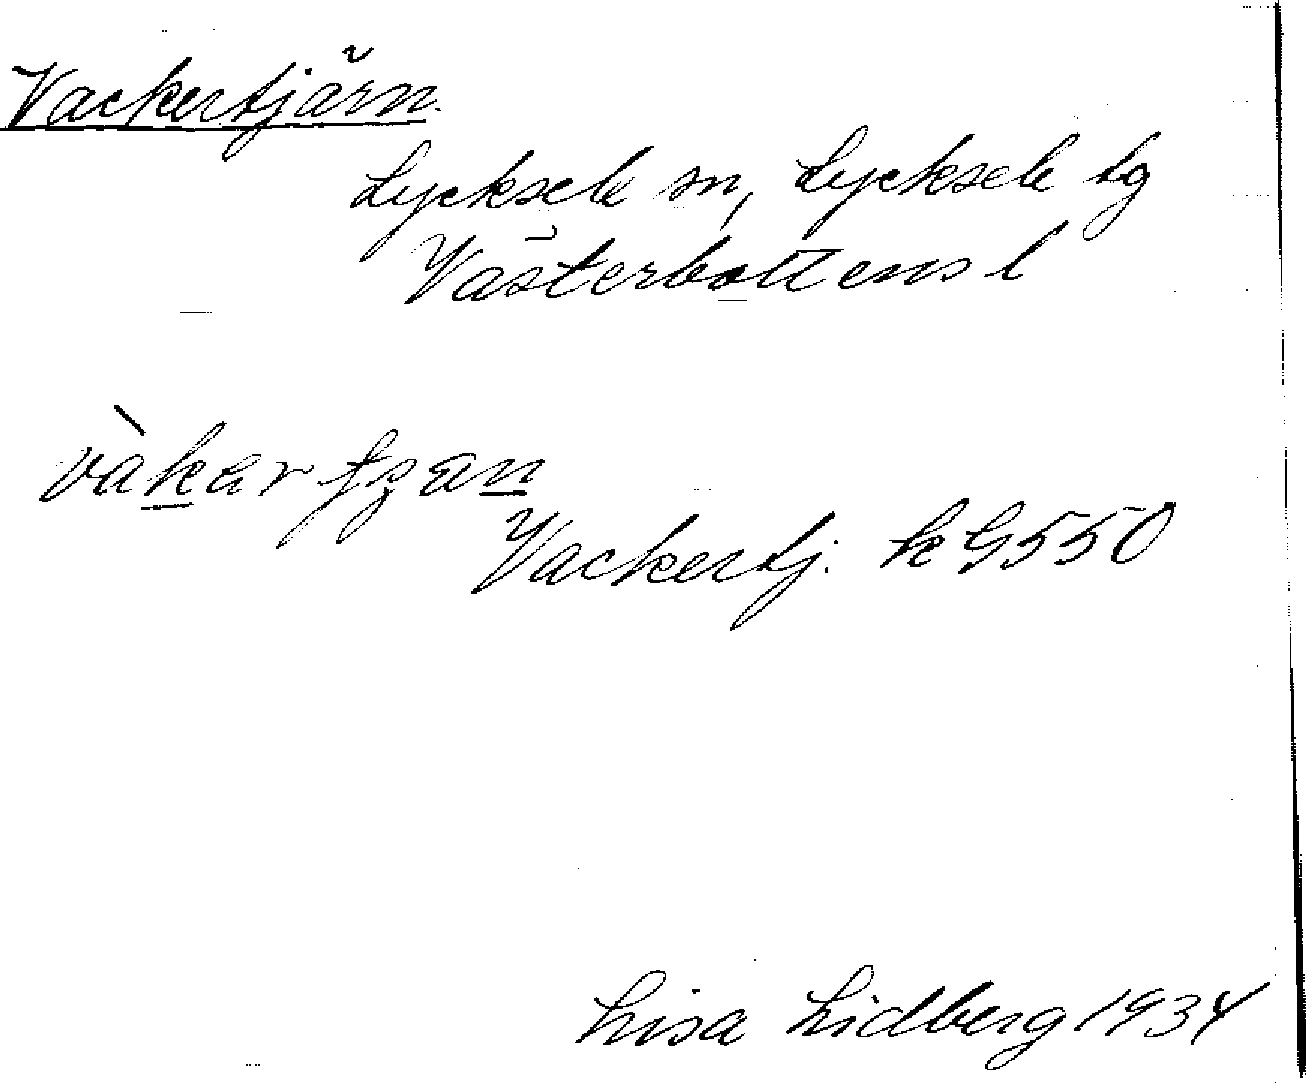 Vackertjärn.
Lycksele sn, Lycksele lg
Västerbottens l
Vackertj. k G550
Lisa Lidberg 1934